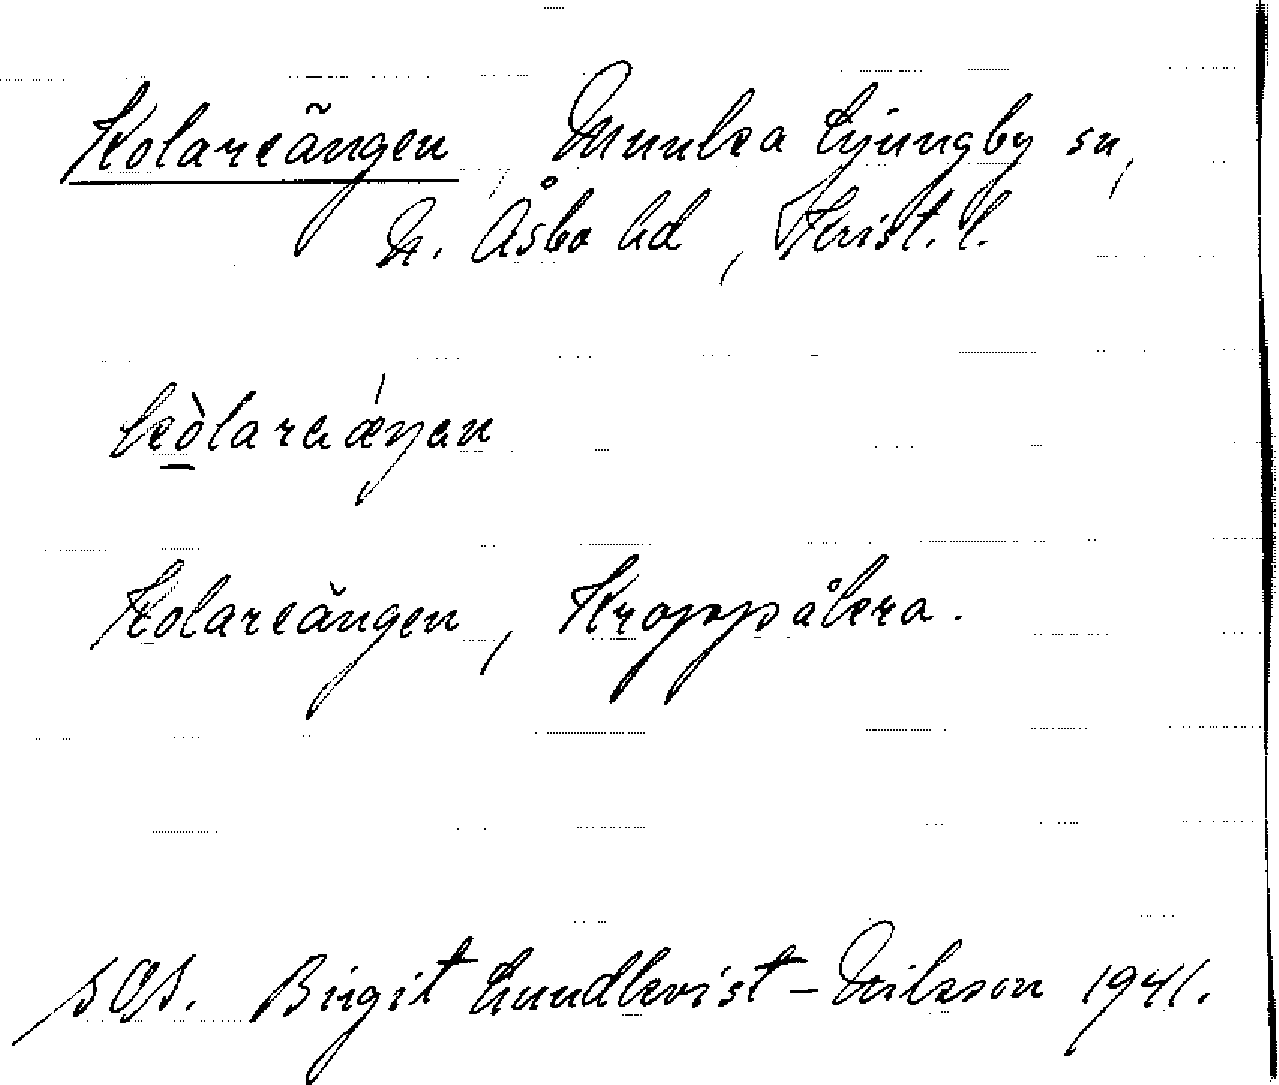 Kolareängen, Munka Ljungby sn,
N. Åsbo hd, Krist. l.
kòlaraǽŋan
Kolareängen, Kroppsåkra.
Birgit Lundkvist-Nilsson 1941.